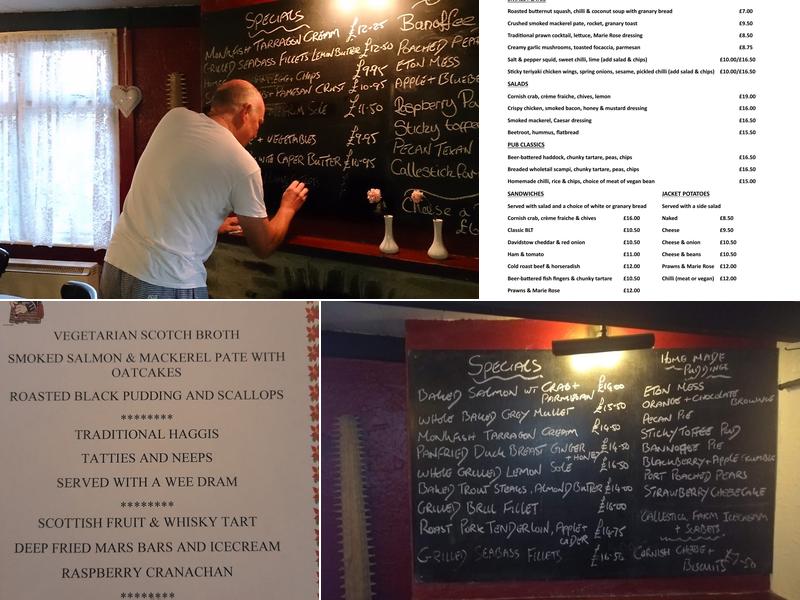 SPECIALS
MONKFISH TARRAGON CREAM £12.25
GRILLED SEABASS FILLETS LEMON BUTTER £12.50
EGG CHIPS £9.95
PARMESAN CRUST £10.95
SOLE £11.50
+ VEGETABLES £9.95
WITH CAPER BUTTER £10.95
Banoffee
POACHED PEAR
ETON MESS
APPLE + BLUEBE
Raspberry Pa
Sticky toffee
PECAN TEXAN
Callestick Far
Cheese a
£6
Roasted butternut squash, chilli & coconut soup with granary bread £7.00
Crushed smoked mackerel pate, rocket, granary toast £9.50
Traditional prawn cocktail, lettuce, Marie Rose dressing £8.50
Creamy garlic mushrooms, toasted focaccia, parmesan £8.75
Salt & pepper squid, sweet chilli, lime (add salad & chips) £10.00/£16.50
Sticky teriyaki chicken wings, spring onions, sesame, pickled chilli (add salad & chips) £10.00/£16.50
SALADS
Cornish crab, crème fraiche, chives, lemon £19.00
Crispy chicken, smoked bacon, honey & mustard dressing £16.00
Smoked mackerel, Caesar dressing £16.50
Beetroot, hummus, flatbread £15.50
PUB CLASSICS
Beer-battered haddock, chunky tartare, peas, chips £16.50
Breaded wholetail scampi, chunky tartare, peas, chips £16.50
Homemade chilli, rice & chips, choice of meat of vegan bean £15.00
SANDWICHES
Served with salad and a choice of white or granary bread
Cornish crab, crème fraiche & chives £16.00
Classic BLT £10.50
Davidstow cheddar & red onion £10.50
Ham & tomato £11.00
Cold roast beef & horseradish £12.00
Beer-battered fish fingers & chunky tartare £10.50
Prawns & Marie Rose £12.00
JACKET POTATOES
Served with a side salad
Naked £8.50
Cheese £9.50
Cheese & onion £10.50
Cheese & beans £10.50
Prawns & Marie Rose £12.00
Chilli (meat or vegan) £12.00
VEGETARIAN SCOTCH BROTH
SMOKED SALMON & MACKEREL PATE WITH
OATCAKES
ROASTED BLACK PUDDING AND SCALLOPS
********
TRADITIONAL HAGGIS
TATTIES AND NEEPS
SERVED WITH A WEE DRAM
********
SCOTTISH FRUIT & WHISKY TART
DEEP FRIED MARS BARS AND ICECREAM
RASPBERRY CRANACHAN
********
SPECIALS
BAKED SALMON WT CRAB + PARMESAN £16.00
WHOLE BAKED GREY MULLET £15.50
MONKFISH TARRAGON CREAM £14.50
PANFRIED DUCK BREAST GINGER + HONEY £14.50
WHOLE GRILLED LEMON SOLE £16.50
BAKED TROUT STEAKS, ALMOND BUTTER £14.00
GRILLED BRILL FILLET £16.00
ROAST PORK TENDERLOIN, APPLE + CIDER £14.75
GRILLED SEABASS FILLETS £16.50
HOME MADE
PUDDINGS
ETON MESS
ORANGE + CHOCOLATE BROWNIE
PECAN PIE
STICKY TOFFEE PUD
BANNOFFEE PIE
BLACKBERRY + APPLE CRUMBLE
PORT POACHED PEARS
STRAWBERRY CHEESECAKE
CALLESTICK FARM ICECREAM
+ SORBETS
CORNISH CHEESE +
BISCUITS £7.50